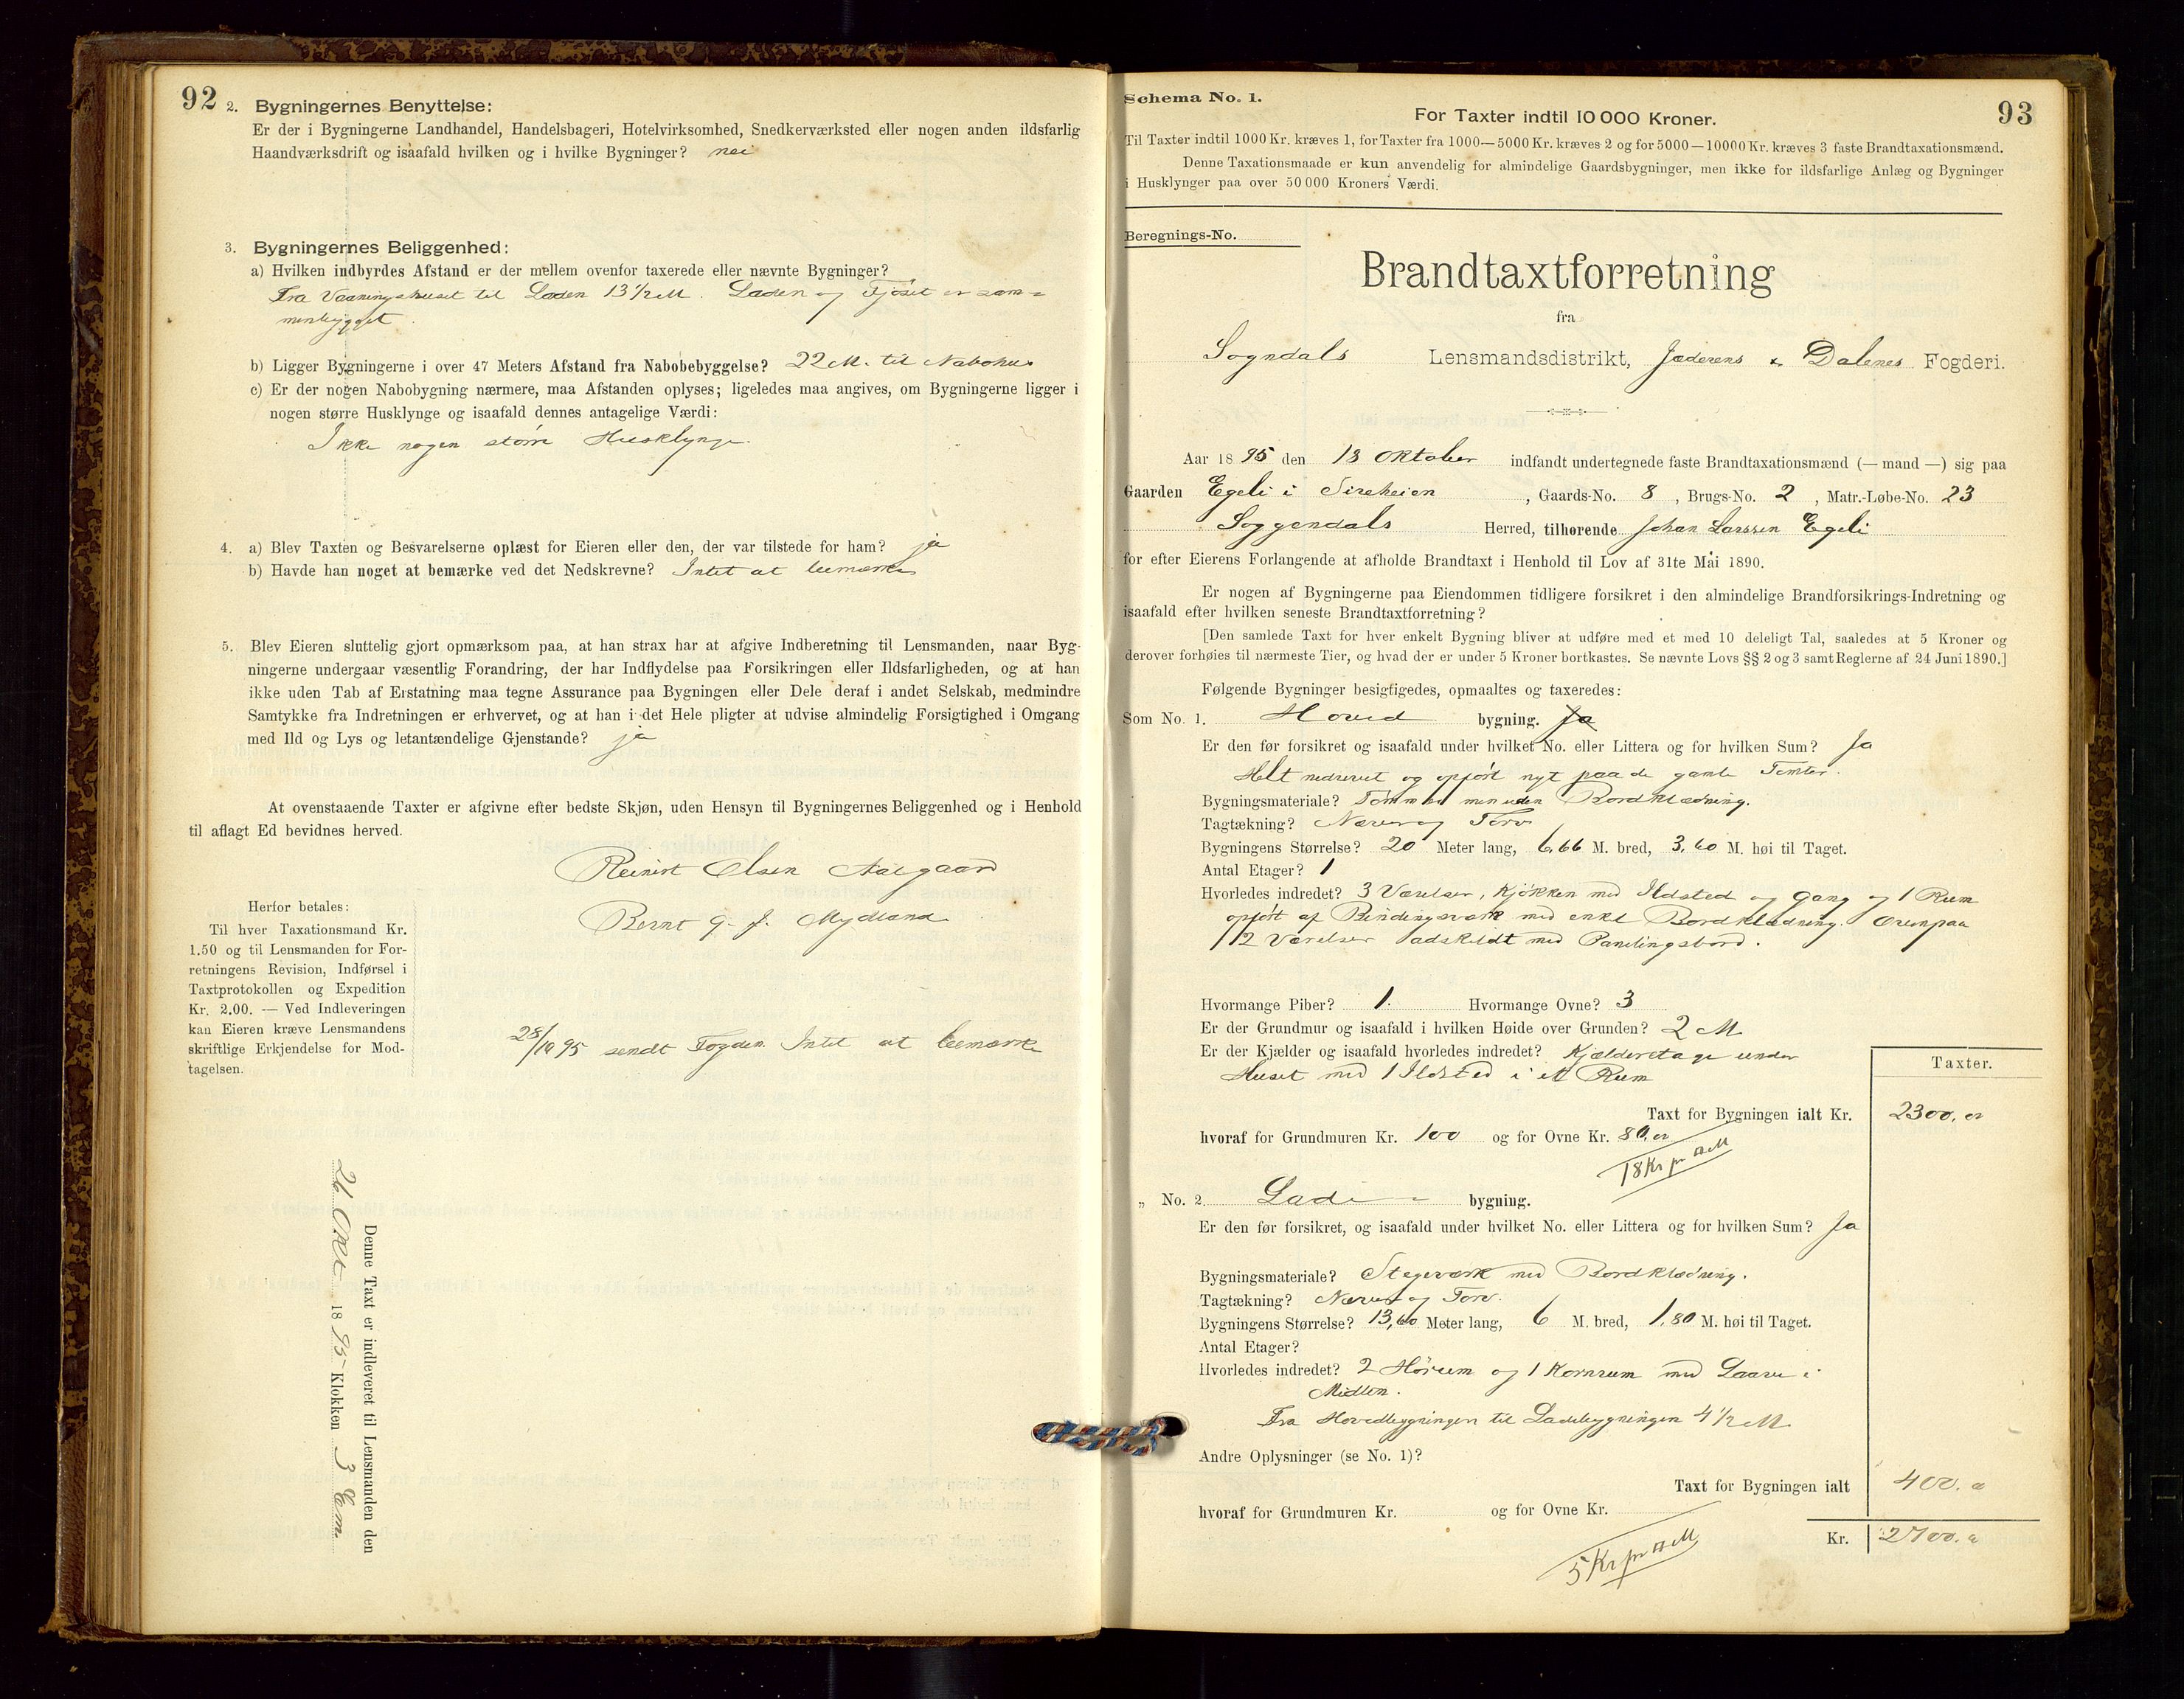 92
2. Bygningernes Benyttelse:
Er der i Bygningerne Landhandel, Handelsbageri, Hotelvirksomhed, Snedkerværksted eller nogen anden ildsfarlig
Haandværksdrift og isaafald hvilken og i hvilke Bygninger? nei
3. Bygningernes Beliggenhed:
a) Hvilken indbyrdes Afstand er der mellem ovenfor taxerede eller nævnte Bygninger?
Fra Vaaningshuset til Laden 13 1/2 M. Laden og Fjöset er sam-
menbygget.
b) Ligger Bygningerne i over 47 Meters Afstand fra Nabobebyggelse? 22 M. til Nabohus
c) Er der nogen Nabobygning nærmere, maa Afstanden oplyses; ligeledes maa angives, om Bygningerne ligger i
nogen større Husklynge og isaafald dennes antagelige Værdi:
Ikke nogen større Husklynge.
4. a) Blev Taxten og Besvarelserne oplæst for Eieren eller den, der var tilstede for ham? ja
b) Havde han noget at bemærke ved det Nedskrevne? Intet at bemærke
5. Blev Eieren sluttelig gjort opmærksom paa, at han strax har at afgive Indberetning til Lensmanden, naar Byg-
ningerne undergaar væsentlig Forandring, der har Indflydelse paa Forsikringen eller Ildsfarligheden, og at han
ikke uden Tab af Erstatning maa tegne Assurance paa Bygningen eller Dele deraf i andet Selskab, medmindre
Samtykke fra Indretningen er erhvervet, og at han i det Hele pligter at udvise almindelig Forsigtighed i Omgang
med Ild og Lys og letantændelige Gjenstande? ja
At ovenstaaende Taxter er afgivne efter bedste Skjøn, uden Hensyn til Bygningernes Beliggenhed og i Henhold
til aflagt Ed bevidnes herved.
Reinert Olsen Aalgaard
Bernt G. J. Mydland
Herfor betales:
Til hver Taxationsmand Kr.
1.50 og til Lensmanden for For-
retningens Revision, Indførsel i
Taxtprotokollen og Expedition
Kr. 2.00. — Ved Indleveringen
kan Eieren kræve Lensmandens
skriftlige Erkjendelse for Mod-
tagelsen.
28/10 95 sendt Fogden. Intet at bemærke
Denne Taxt er indleveret til Lensmanden den
26 Okt 1895 Klokken 3 Em.
93
Schema No. 1.
For Taxter indtil 10 000 Kroner.
Til Taxter indtil 1000 Kr. kræves 1, for Taxter fra 1000—5000 Kr. kræves 2 og for 5000—10000 Kr. kræves 3 faste Brandtaxationsmænd.
Denne Taxationsmaade er kun anvendelig for almindelige Gaardsbygninger, men ikke for ildsfarlige Anlæg og Bygninger
i Husklynger paa over 50 000 Kroners Værdi.
Beregnings-No.
Brandtaxtforretning
fra
Sogndals Lensmandsdistrikt, Jæderens & Dalenes Fogderi.
Aar 1895 den 13 Oktober indfandt undertegnede faste Brandtaxationsmænd (— mand —) sig paa
Gaarden Egeli i Sireheien, Gaards-No. 8, Brugs-No. 2, Matr.-Løbe-No. 23
Soggendals Herred, tilhørende Johan Larssen Egeli
for efter Eierens Forlangende at afholde Brandtaxt i Henhold til Lov af 31te Mai 1890.
Er nogen af Bygningerne paa Eiendommen tidligere forsikret i den almindelige Brandforsikrings-Indretning og
isaafald efter hvilken seneste Brandtaxtforretning?
[Den samlede Taxt for hver enkelt Bygning bliver at udføre med et med 10 deleligt Tal, saaledes at 5 Kroner og
derover forhøies til nærmeste Tier, og hvad der er under 5 Kroner bortkastes. Se nævnte Lovs §§ 2 og 3 samt Reglerne af 24 Juni 1890.]
Følgende Bygninger besigtigedes, opmaaltes og taxeredes:
Som No. 1. Hoved bygning. Ja
Er den før forsikret og isaafald under hvilket No. eller Littera og for hvilken Sum? Ja
Helt nedrevet og opført nyt paa de gamle Tomter.
Bygningsmateriale? Tömmer men uden Bordklædning.
Tagtækning? Næver og Torv
Bygningens Størrelse? 20 Meter lang, 6,66 M. bred, 3,60 M. høi til Taget.
Antal Etager? 1
Hvorledes indredet? 3 Værelser, Kjökken med Ildsted og Gang og 1 Rum
opført af Bindingsværk med enkel Bordklædning. Ovenpaa
2 Værelser adskildt med Panelingsbord.
Hvormange Piber? 1. Hvormange Ovne? 3
Er der Grundmur og isaafald i hvilken Høide over Grunden? 2 M.
Er der Kjælder og isaafald hvorledes indredet? Kjælderetage under
Huset med 1 Ildsted i et Rum
Taxter.
Taxt for Bygningen ialt Kr. 2300.
hvoraf for Grundmuren Kr. 100 og for Ovne Kr. 80.
18 Kr pr □M
„ No. 2. Lade- bygning.
Er den før forsikret, og isaafald under hvilket No. eller Littera og for hvilken Sum? Ja
Bygningsmateriale? Stegværk med Bordklædning.
Tagtækning? Næver og Torv.
Bygningens Størrelse? 13,60 Meter lang, 6 M. bred, 1,80 M. høi til Taget.
Antal Etager?
Hvorledes indredet? 2 Hörum og 1 Kornrum med Laave i
Midten.
Fra Hovedbygningen til Ladebygningen 4 1/2 M.
Andre Oplysninger (se No. 1)?
Taxt for Bygningen ialt 400.
hvoraf for Grundmuren Kr. og for Ovne Kr.
Kr. 2700.
5 Kr pr □M